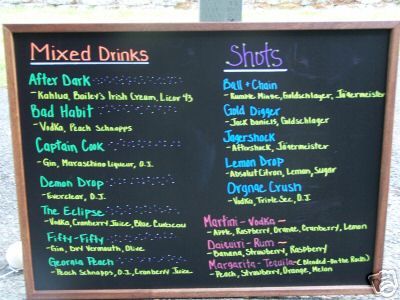 Mixed Drinks
After Dark
-Kahlua, Bailey's Irish Cream, Licor 43
Bad Habit
-Vodka, Peach Schnapps
Captain Cook
-Gin, Maraschino Liqueur, O.J.
Demon Drop
-Everclear, O.J.
The Eclipse
-Vodka, Cranberry Juice, Blue Curacau
Fifty-Fifty
-Gin, Dry Vermouth, Olive
Georgia Peach
-Peach Schnapps, O.J., Cranberry Juice
Shots
Ball + Chain
-Rumple Minze, Goldschlager, Jägermeister
Gold Digger
-Jack Daniels, Goldschlager
Jägershock
-Aftershock, Jägermeister
Lemon Drop
-Absolut Citron, Lemon, Sugar
Orange Crush
-Vodka, Triple Sec, O.J.
Martini - Vodka ~
-Apple, Raspberry, Orange, Cranberry, Lemon
Daiquiri - Rum ~
-Banana, Strawberry, Raspberry
Margarita - Tequila ~ (Blended - On the Rocks)
-Peach, Strawberry, Orange, Melon